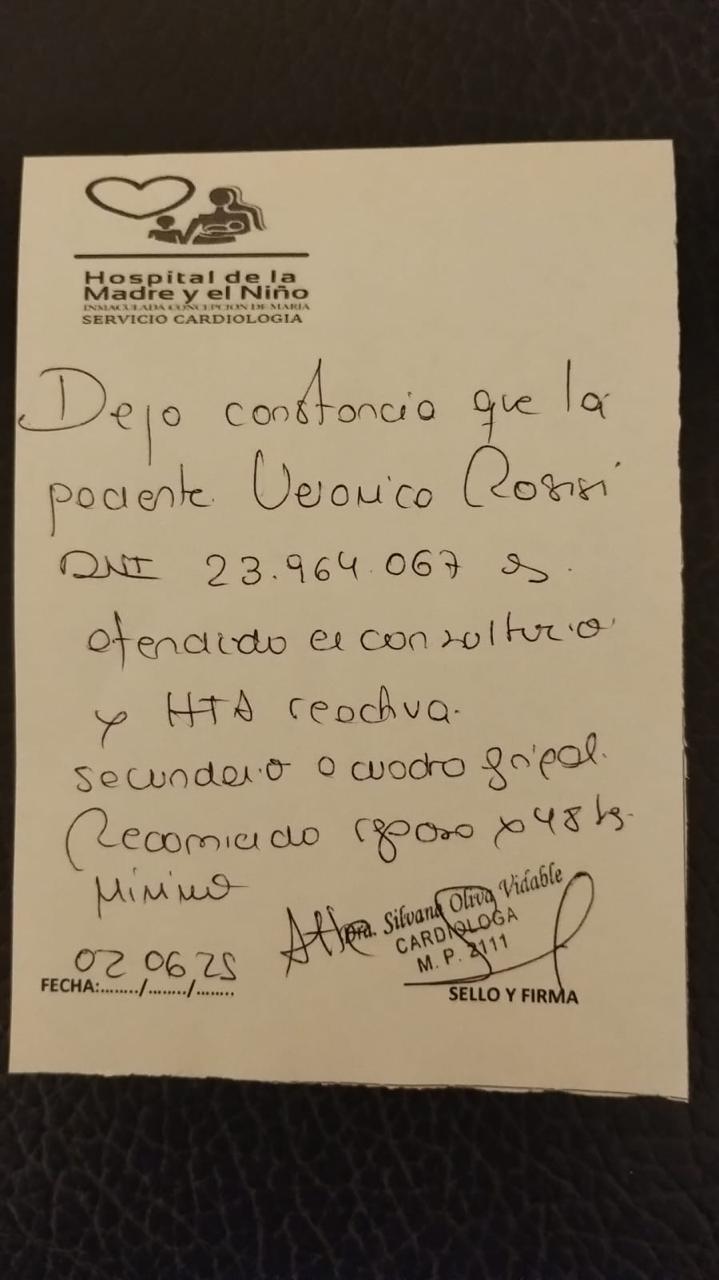 Hospital de la
Madre y el Niño
INMACULADA CONCEPCION DE MARIA
SERVICIO CARDIOLOGIA
Dejo constancia que la
paciente Veronica Rossi
DNI 23.964.067 es
atendido en consultorio
y HTA reactiva.
secundario a cuadro gripal.
Recomiendo reposo x 48 hs.
Minimo
Atte
Dra. Silvana Oliva Vidable
CARDIOLOGA
M. P. 2111
02 06 25
FECHA:......../......../........
SELLO Y FIRMA